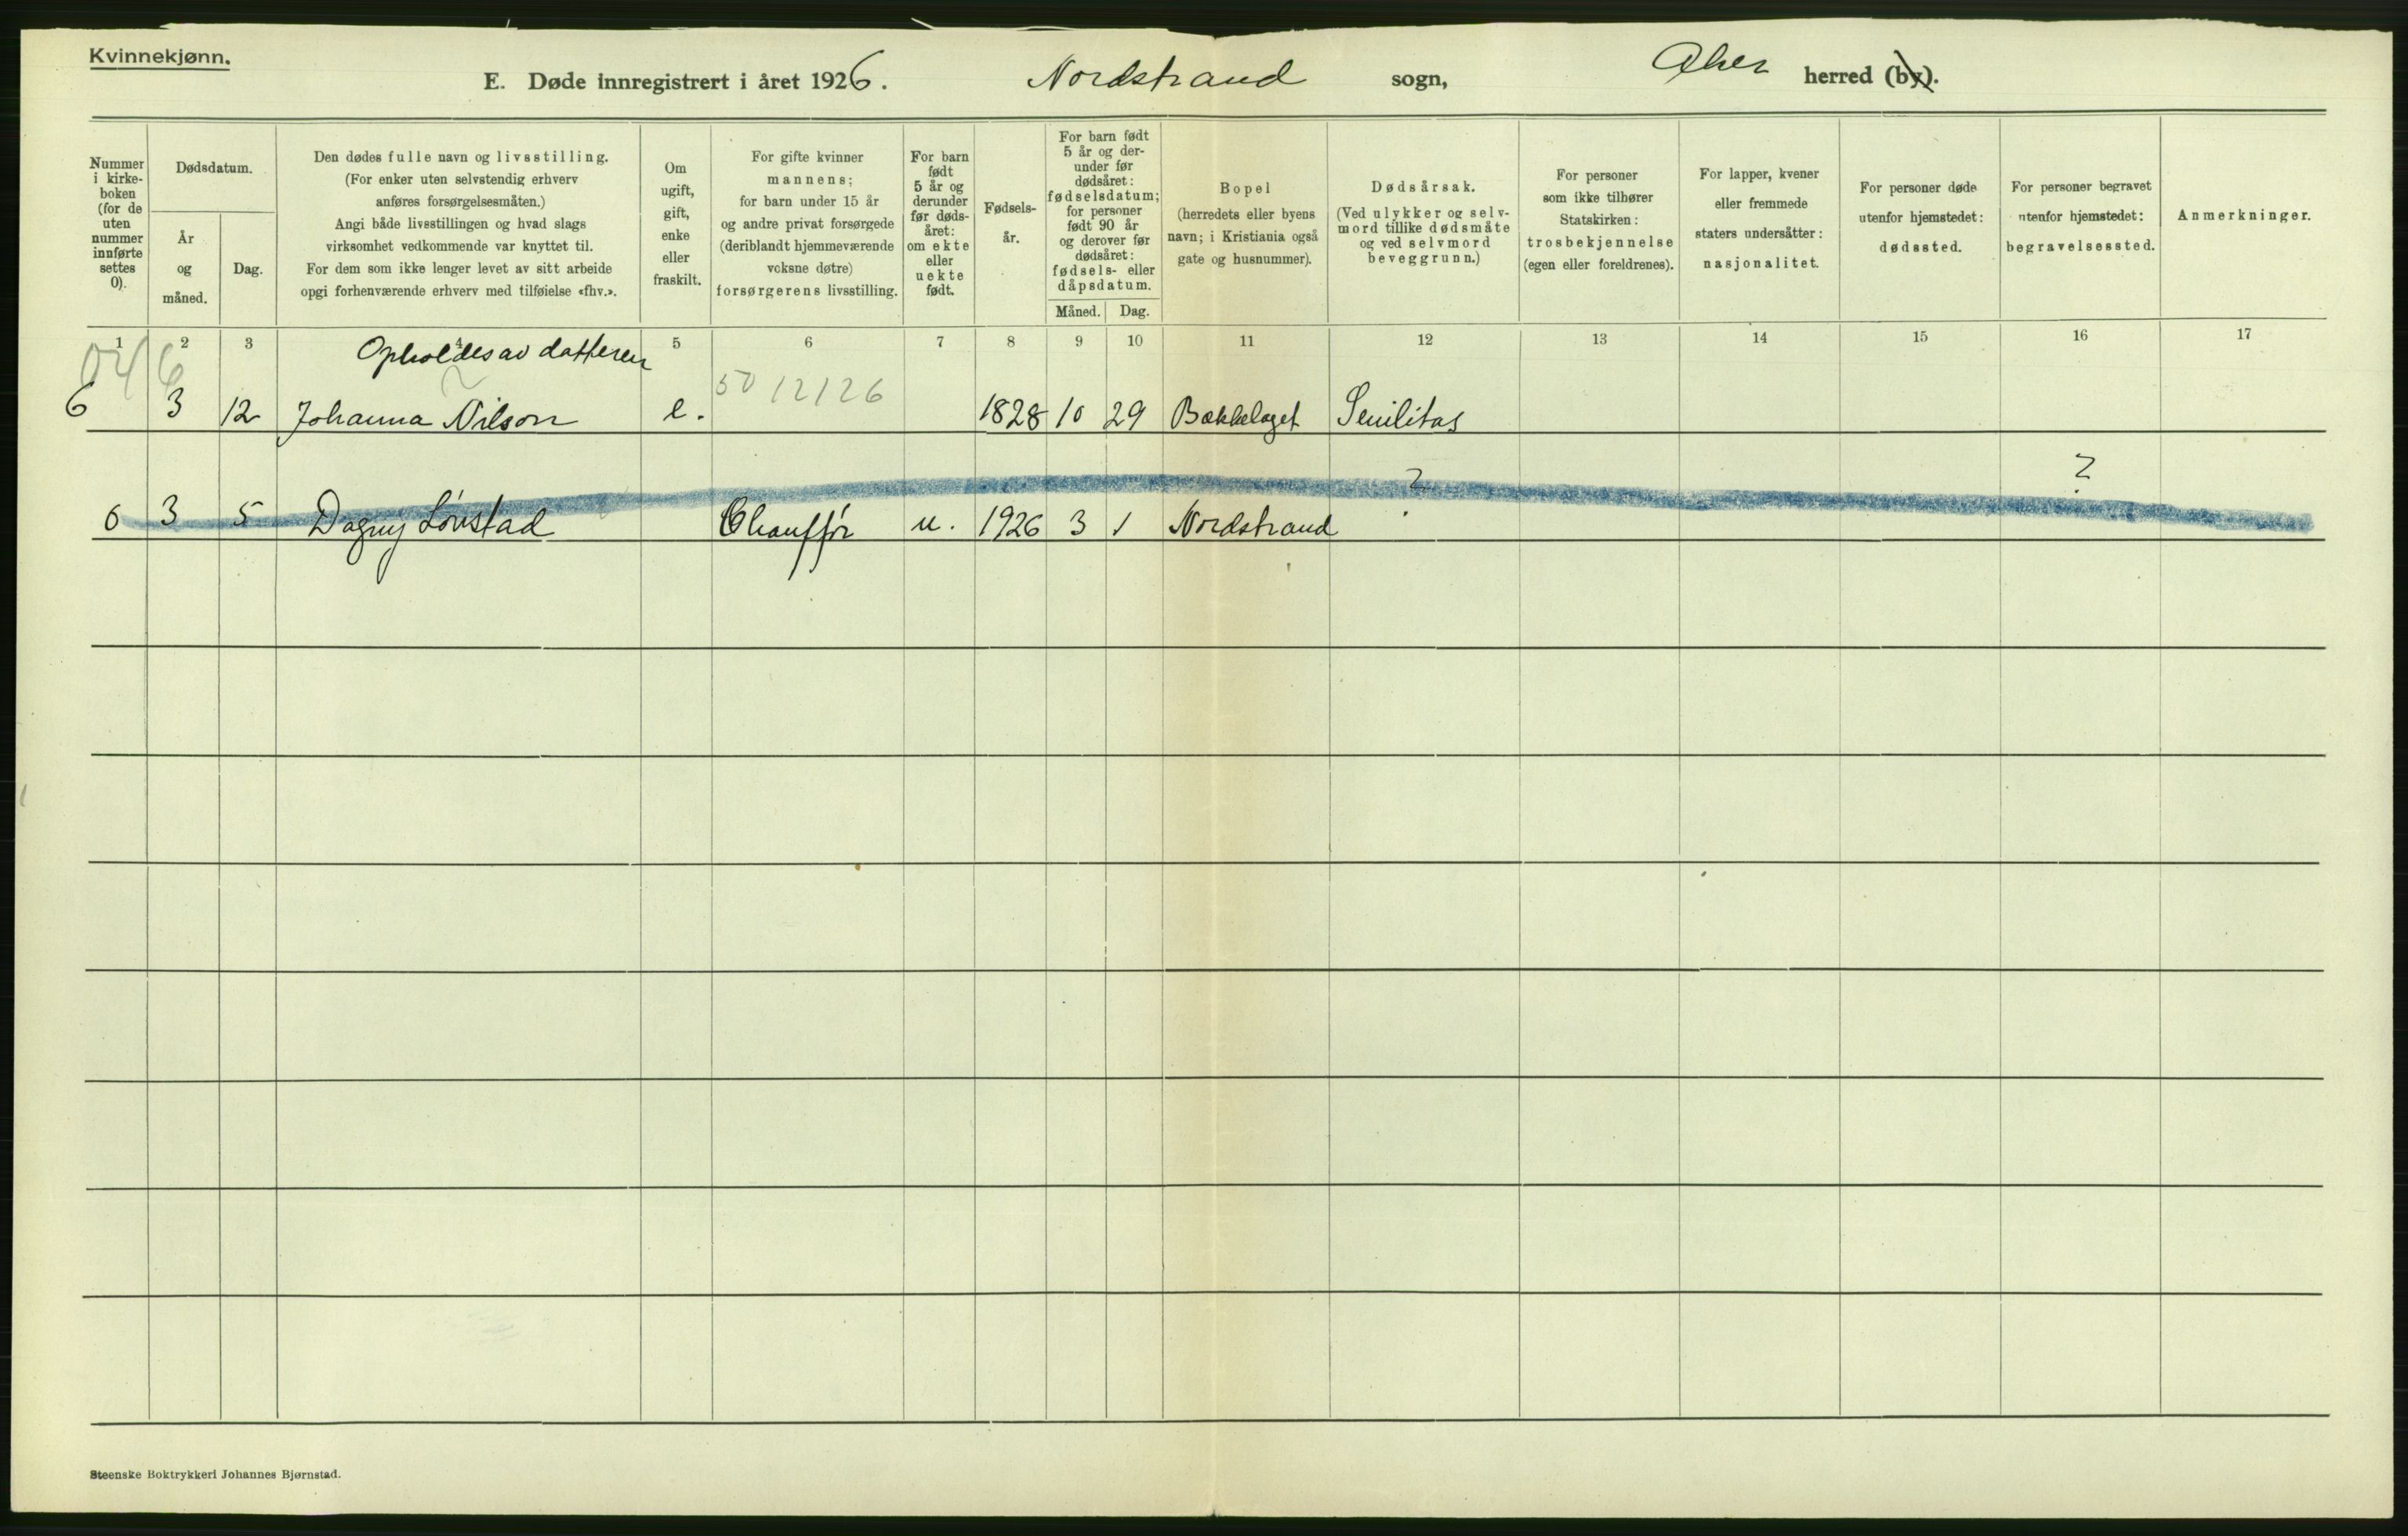 Kvinnekjønn.
E. Døde innregistrert i året 1926. Nordstrand sogn, Aker herred (by).
Nummer i kirke-boken (for de uten nummer innførte settes 0).
Dødsdatum.
År og måned.
Dag.
Den dødes fulle navn og livsstilling.
(For enker uten selvstendig erhverv
anføres forsørgelsesmåten.)
Angi både livsstillingen og hvad slags
virksomhet vedkommende var knyttet til.
For dem som ikke lenger levet av sitt arbeide
opgi forhenværende erhverv med tilføielse «fhv.».
Om
ugift,
gift,
enke
eller
fraskilt.
For gifte kvinner
mannens;
for barn under 15 år
og andre privat forsørgede
(deriblandt hjemmeværende
voksne døtre)
forsørgerens livsstilling.
For barn
født
5 år og
derunder
før døds-
året:
om ekte
eller
uekte
født.
Fødsels-
år.
For barn født
5 år og der-
under før
dødsåret:
fødselsdatum;
for personer
født 90 år
og derover før
dødsåret:
fødsels- eller
dåpsdatum.
Måned. Dag.
Bopel
(herredets eller byens
navn; i Kristiania også
gate og husnummer).
Dødsårsak.
(Ved ulykker og selv-
mord tillike dødsmåte
og ved selvmord
beveggrunn.)
For personer
som ikke tilhører
Statskirken:
trosbekjennelse
(egen eller foreldrenes).
For lapper, kvener
eller fremmede
staters undersåtter:
nasjonalitet.
For personer døde
utenfor hjemstedet:
dødssted.
For personer begravet
utenfor hjemstedet:
begravelsessted.
Anmerkninger.
1 2 3 4 5 6 7 8 9 10 11 12 13 14 15 16 17
Opholdes av datteren
50 12126
6 3 12 Johanna Nilson e. 1828 10 29 Bækkelaget Senilitas
? ?
0 3 5 Dagny Lønstad Chauffør u. 1926 3 1 Nordstrand
Steenske Boktrykkeri Johannes Bjørnstad.